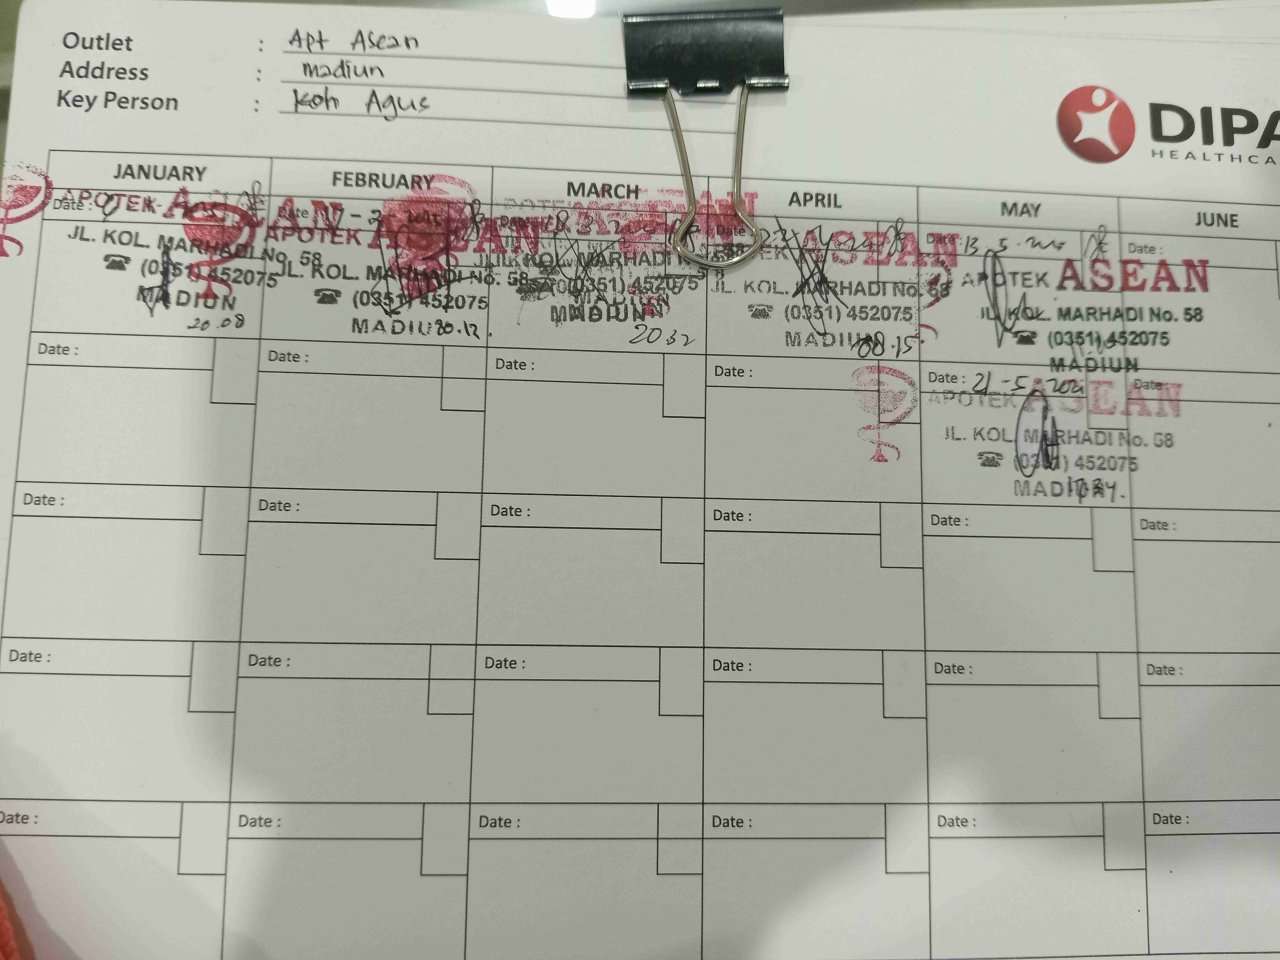 Outlet : Apt Asean
Address : madiun
Key Person : Koh Agus
DIPA
HEALTHCA
JANUARY FEBRUARY MARCH APRIL MAY JUNE
Date :
APOTEK
JL. KOL. MARHADI No. 58
(0351) 452075
MADIUN
20.08
Date
APOTEK ASEAN
JL. KOL. MARHADI No. 58
(0351) 452075
20.12.
JL. KOL. MARHADI
(0351) 452075
MADIUN
20.32
Date
ASEAN
JL. KOL. MARHADI No. 58
(0351) 452075
MADIUN
08.15.
Date : 13.5.
APOTEK ASEAN
JL. KOL. MARHADI No. 58
(0351) 452075
MADIUN
Date :
Date : Date : Date : Date : Date : 21-5- Date
APOTEK ASEAN
JL. KOL. MARHADI No. 58
(0351) 452075
Date : Date : Date : Date : Date : Date :
Date : Date : Date : Date : Date : Date :
Date : Date : Date : Date : Date : Date :